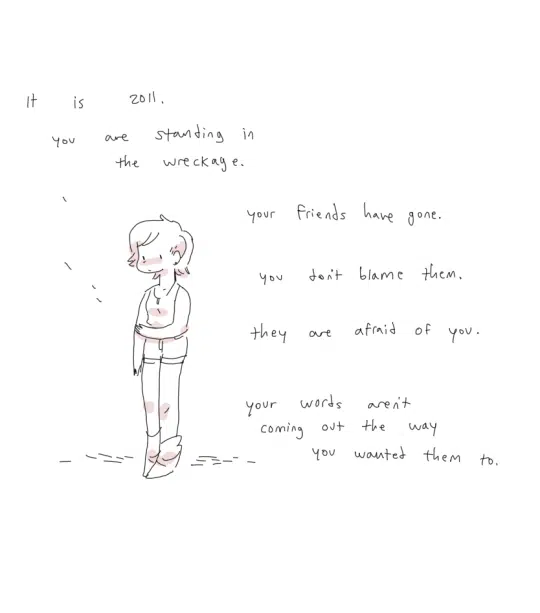 It is 2011.
you are standing in
the wreckage.
your friends have gone.
you don't blame them.
they are afraid of you.
your words aren't
coming out the way
you wanted them to.